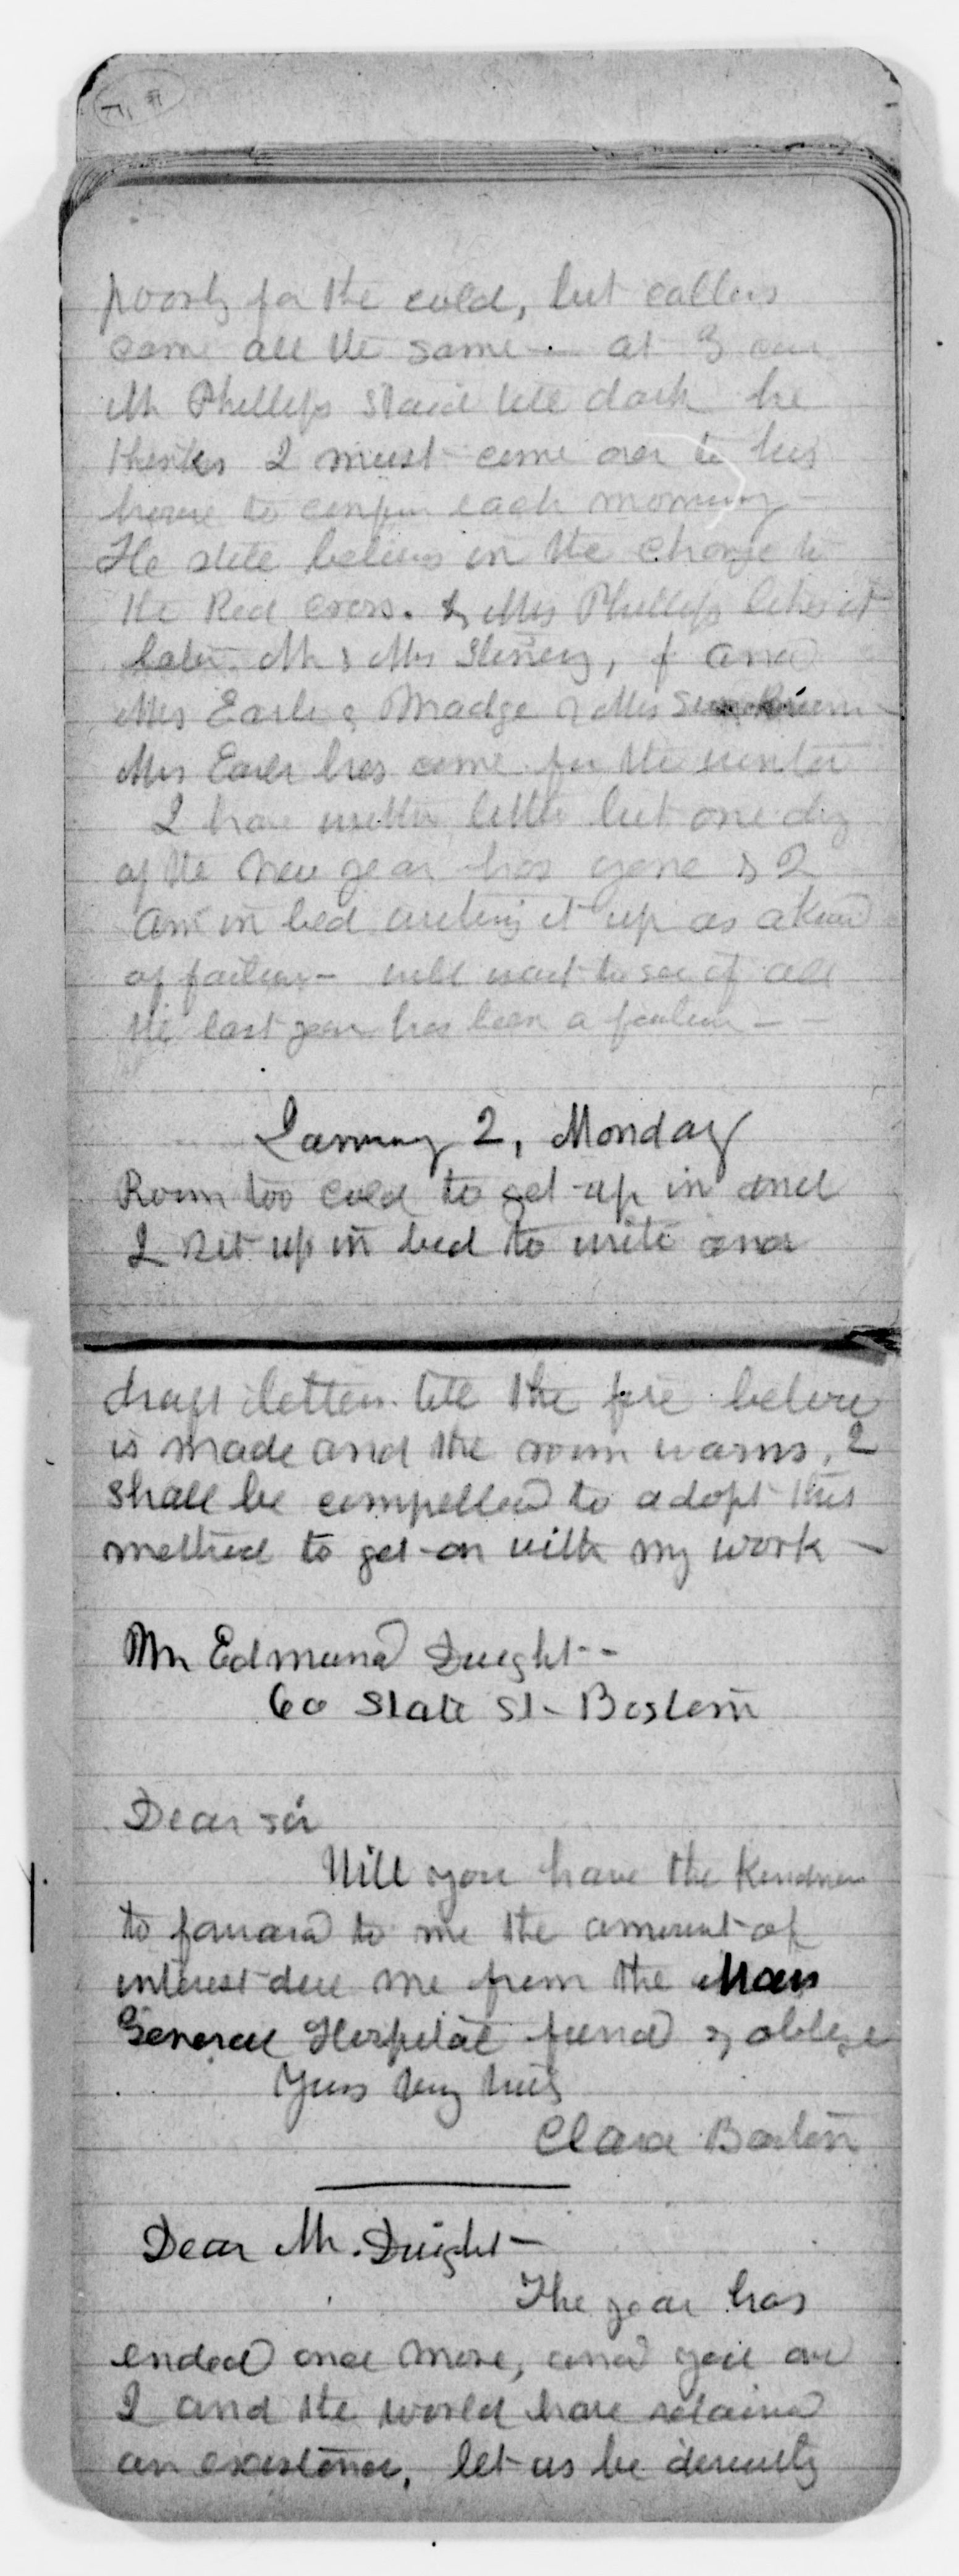 poorly for the cold, but callers
came all the same — at 3 our
Mr Phillips staid till dark he
thinks I must come over to his
house to confer each morning —
He still believes in the change to
the Red Cross. & Mrs Phillips likes it
later. Mr & Mrs and
Mrs Earle & Madge & Mrs
Mrs Earle has come for the winter
I have written little but one day
of the New year has gone & I
am in bed writing it up as a kind
of failure — will wait to see if all
the last year has been a failure — —
January 2, Monday
Room too cold to get up in and
I sit up in bed to write and
draft letters till the fire below
is made and the room warms, I
shall be compelled to adopt this
method to get on with my work —
Mr Edmund Dwight --
60 State St - Boston
Dear sir
Will you have the kindness
to forward to me the amount of
interest due me from the Mass
General Hospital fund & oblige
Yours very truly
Clara Barton
Dear Mr. Dwight —
The year has
ended once more, and you and
I and the world have retained
an existence, let us be devoutly